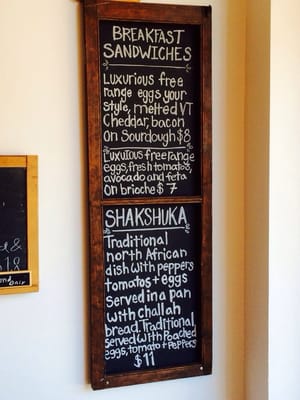 BREAKFAST
SANDWICHES
Luxurious free
range eggs your
style, melted VT
Cheddar, bacon
on Sourdough $8
Luxurious free range
eggs, fresh tomatos,
avocado and feta
on brioche $ 7
SHAKSHUKA
Traditional
north African
dish with peppers
tomatos + eggs
served in a pan
with challah
bread. Traditional,
served with Poached
eggs, tomato + Peppers
$11